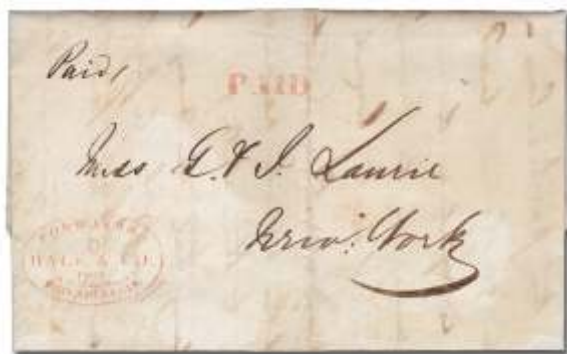 Paid,
PAID
Miss G. & J. Laurie
New York
FORWARDED
BY
HALE & CO.
FROM